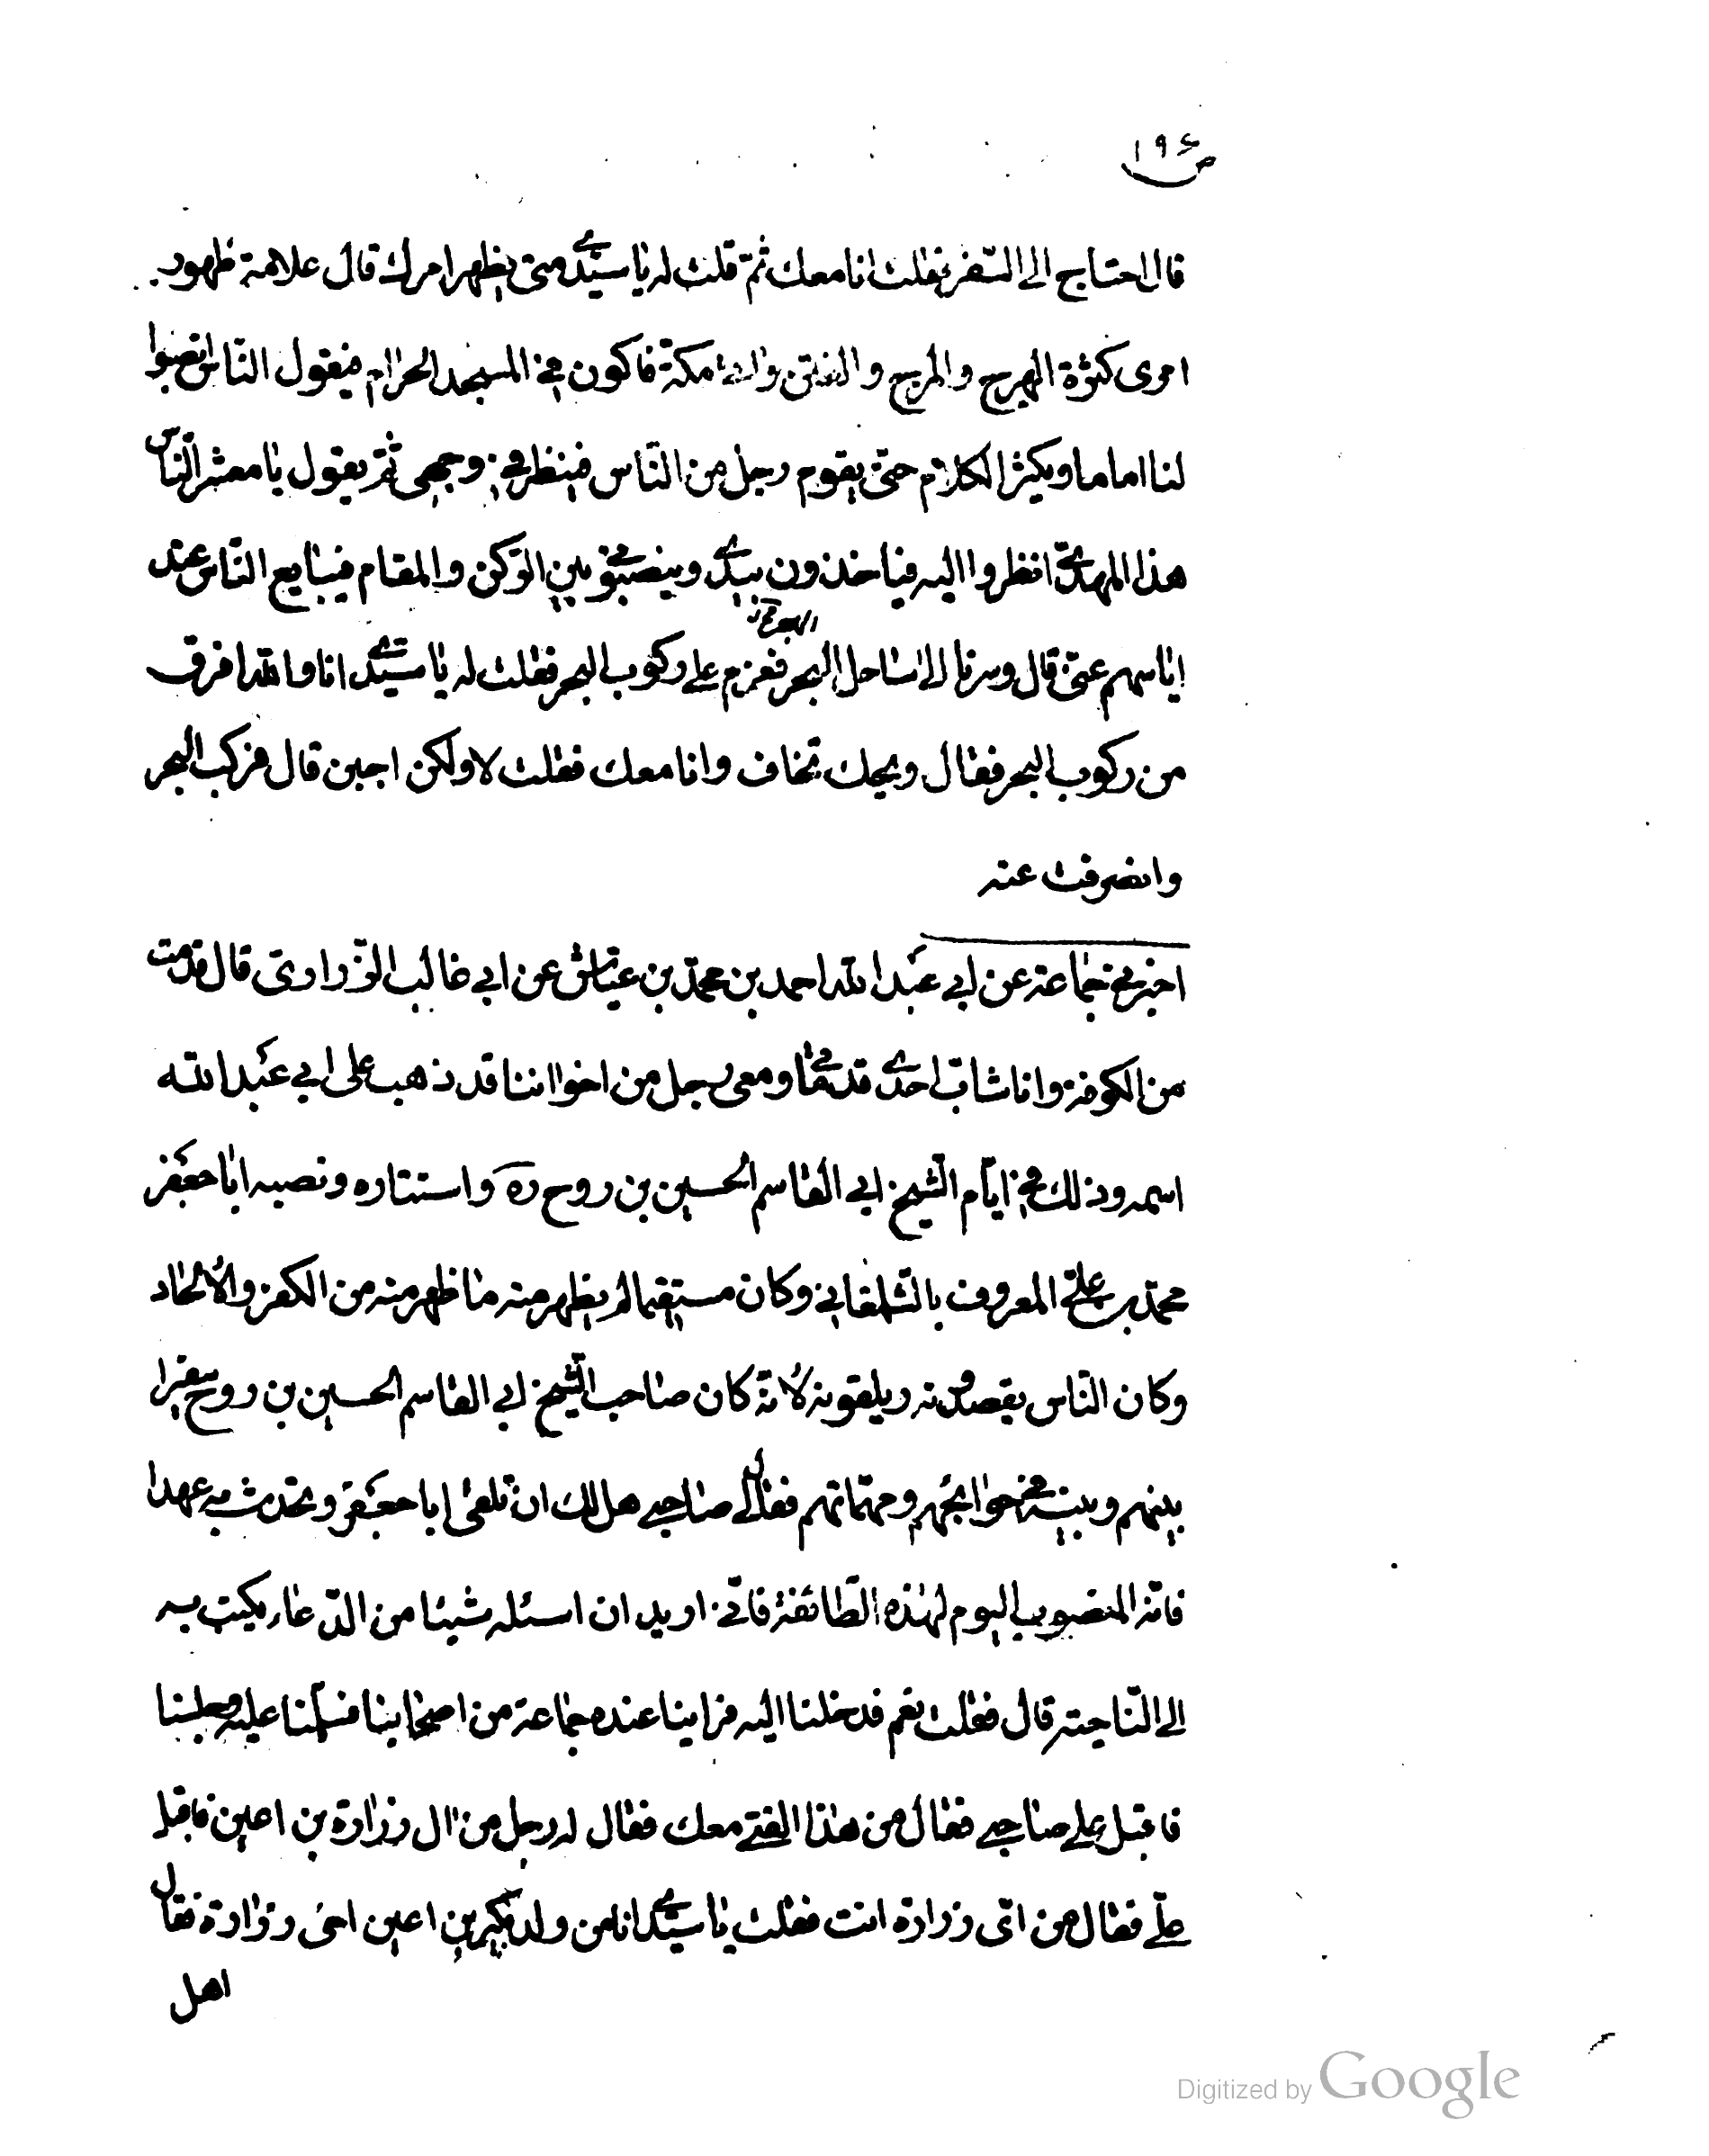 ص ١٩٤
قال احتاج الى السّفر فقلت انا معك ثمّ قلت له يا سيّدي متى يظهر امرك قال علامة ظهور
امرى كثرة الهرج والمرج والفتن واتى مكّة فاكون في المسجد الحرام فيقول النّاس انصبوا
لنا اماما ويكثر الكلام حتّى يقوم رجل من النّاس فينظر في وجهى ثمّ يقول يا معشر النّاس
هذا المهدىّ انظروا اليه فياخذون بيدي وينصبوني بين الرّكن والمقام فيبايع النّاس عند
اياسهم عنّي قال وسرنا الى ساحل البحر فعزم على ركوب البحر فقلت له يا سيّدي انا والله افرق
من ركوب البحر فقال ويحك تخاف وانا معك فقلت لا ولكن اجبن قال فركب البحر
وانصرفت عنه
اخبرني جماعة عن ابي عبد الله احمد بن محمّد بن عيّاش عن ابي غالب الزّرارىّ قال قدمت
من الكوفة وانا شابّ احدى قدماتي ومعى رجل من اخواننا قد ذهب على ابي عبد الله
اسمه وذلك في ايّام الشّيخ ابي القاسم الحسين بن روح ره واستتاره ونصبه ابا جعفر
محمّد بن علىّ المعروف بالشّلمغاني وكان مستقيما لم يظهر منه ما ظهر منه من الكفر والالحاد
وكان النّاس يقصدونه ويلقونه لانّه كان صاحب الشّيخ ابي القاسم الحسين بن روح سفيرا
بينهم وبينه في حوائجهم ومهمّاتهم فقال لي صاحبي هل لك ان تلقى ابا جعفر وتحدث به عهدا
فانّه المنصوب اليوم لهذه الطّائفة فانّي اريد ان اسئله شيئا من الدّعاء يكتب به
الى النّاحية قال فقلت نعم فدخلنا اليه فراينا عنده جماعة من اصحابنا فسلّمنا عليه وجلسنا
فاقبل على صاحبي فقال من هذا الفتى معك فقال له رجل من ال زرارة بن اعين فاقبل
علىّ فقال من اىّ زرارة انت فقلت يا سيّدي انا من ولد بكير بن اعين اخى زرارة فقال
اهل
Digitized by Google